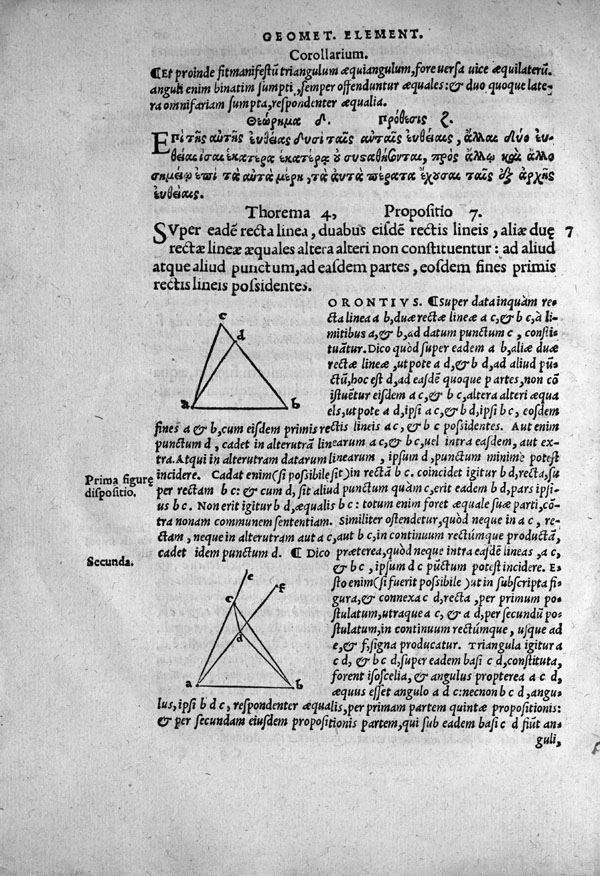 GEOMET. ELEMENT.
Corollarium.
¶Et proinde fit manifestũ triangulum æquiangulum, fore uersa uice æquilaterũ.
anguli enim binatim sumpti, semper offenduntur æquales: & duo quoque late-
ra omnifariam sumpta, respondenter æqualia.
Θεώρημα δ. Πρόθεσις ζ.
Επὶ τῆς αὐτῆς εὐθείας δυσὶ ταῖς αὐταῖς εὐθείαις, ἄλλαι δύο εὐ-
θεῖαι ἴσαι ἑκατέρα ἑκατέρᾳ οὐ συσαθήσονται, πρὸς ἄλλῳ καὶ ἄλλο
σημείῳ ἐπὶ τὰ αὐτὰ μέρη, τὰ αὐτὰ πέρατα ἔχουσαι ταῖς ἐξ ἀρχῆς
εὐθείαις.
Thorema 4, Propositio 7.
SVper eadẽ recta linea, duabus eisdẽ rectis lineis, aliæ duę 7
rectæ lineæ æquales altera alteri non constituentur: ad aliud
atque aliud punctum, ad easdem partes, eosdem fines primis
rectis lineis possidentes.
ORONTIVS. ¶Super data inquàm re-
cta linea a b, duæ rectæ lineæ a c, & b c, à li-
mitibus a, & b, ad datum punctum c, consti-
tuãtur. Dico quòd super eadem a b, aliæ duæ
rectæ lineæ, utpote a d, & b d, ad aliud pũ-
ctũ, hoc est d, ad easdẽ quoque partes, non cõ
istuẽtur eisdem a c, & b c, altera alteri æqua
els, utpote a d, ipsi a c, & b d, ipsi b c, eosdem
fines a & b, cum eisdem primis rectis lineis a c, & b c possidentes. Aut enim
punctum d, cadet in alterutrã linearum a c, & b c, uel intra easdem, aut ex-
tra. Atqui in alterutram datarum linearum, ipsum d, punctum minimè potest
incidere. Cadat enim (si possibile sit) in rectã b c. coincidet igitur b d, recta, su
per rectam b c: & cum d, sit aliud punctum quàm c, erit eadem b d, pars ipsi-
us b c. Non erit igitur b d, æqualis b c: totum enim foret æquale suæ parti, cõ-
tra nonam communem sententiam. Similiter ostendetur, quòd neque in a c, re-
ctam, neque in alterutram aut a c, aut b c, in continuum rectúmque productã,
cadet idem punctum d. ¶ Dico præterea, quòd neque intra easdẽ lineas, a c,
& b c, ipsum d c pũctum potest incidere. E-
sto enim (si fuerit possibile) ut in subscripta fi-
gura, & connexa c d, recta, per primum po-
stulatum, utraque a c, & a d, per secundũ po-
stulatum, in continuum rectúmque, usque ad
e, & f, signa producatur. Triangula igitur a
c d, & b c d, super eadem basi c d, constituta,
forent isoscelia, & angulus propterea a c d,
æquus esset angulo a d c: necnon b c d, angu-
lus, ipsi b d c, respondenter æqualis, per primam partem quintæ propositionis:
& per secundam eiusdem propositionis partem, qui sub eadem basi c d fiũt an-
guli,
Prima figurę
dispositio.
Secunda.
c
d
a
b
e
f
c
d
a
b